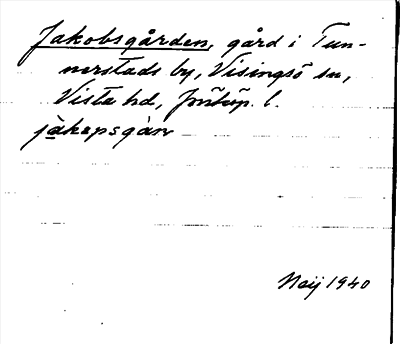 Jakobsgården, gård i Tun-
nerstads by, Visingsö sn,
Vista hd, Jönköp. l.
jàkəpsgàṛn
Neij 1940